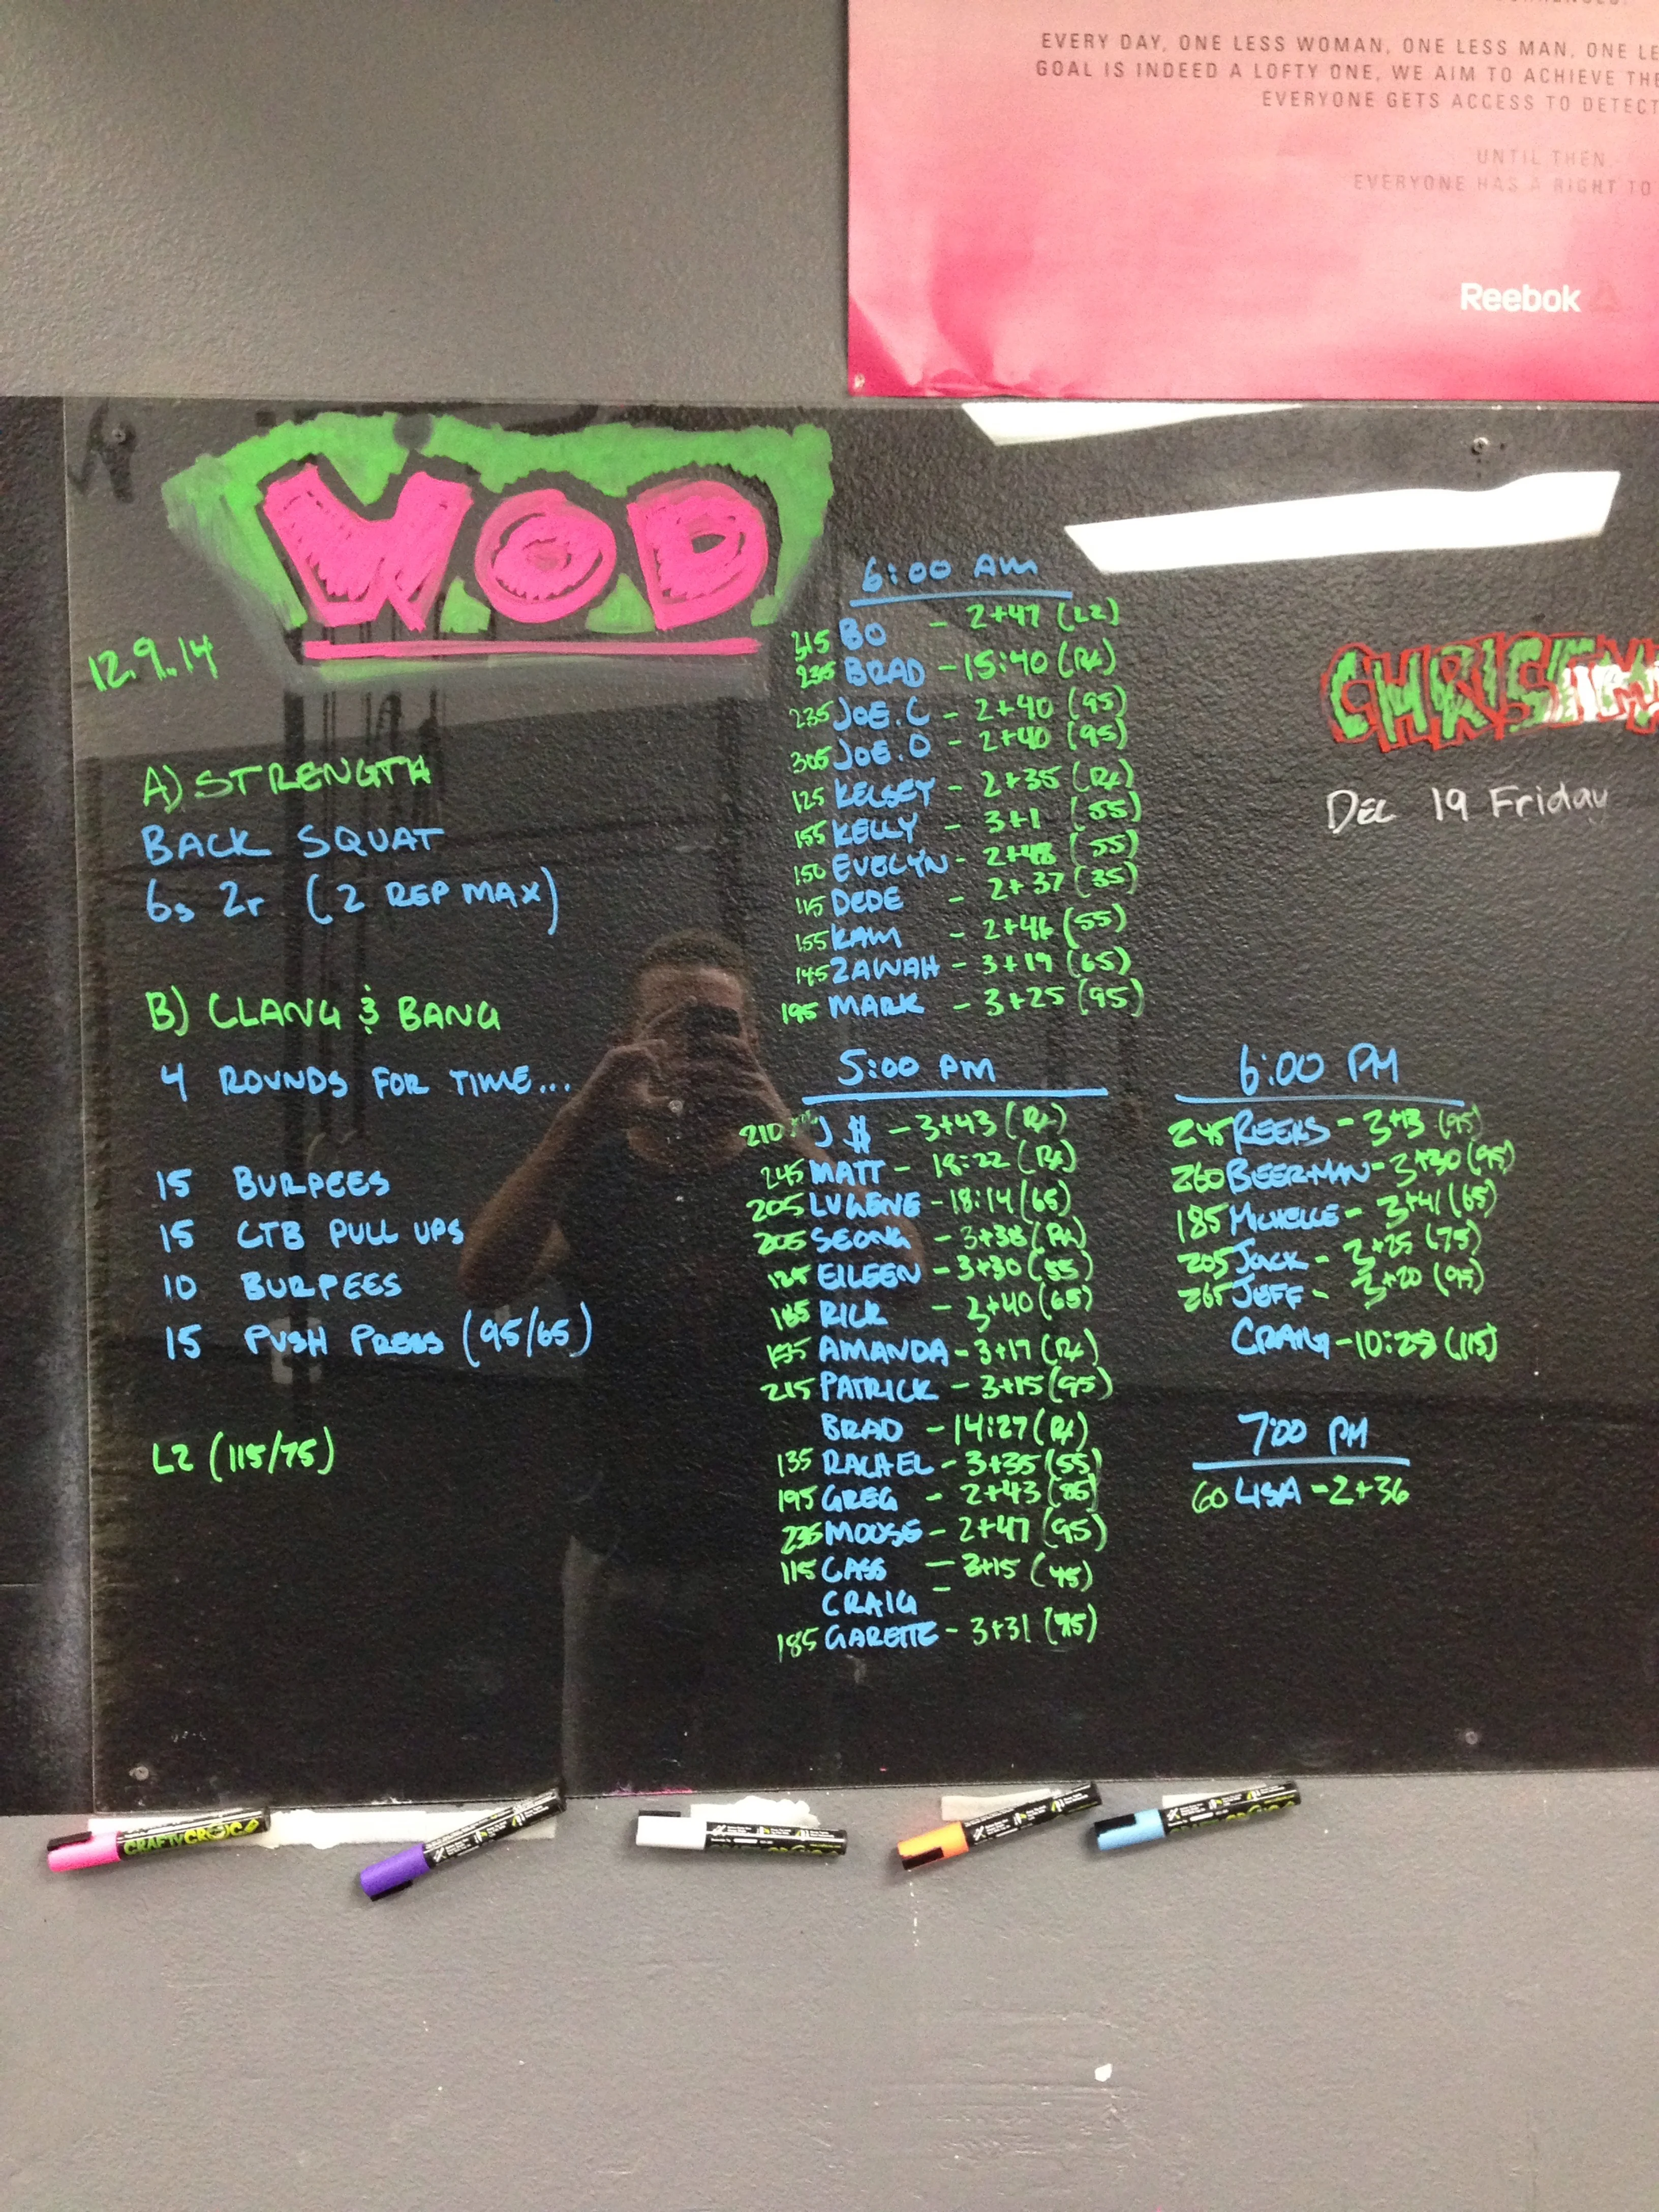 EVERY DAY, ONE LESS WOMAN, ONE LESS MAN, ONE
GOAL IS INDEED A LOFTY ONE, WE AIM TO ACHIEVE
EVERYONE GETS ACCESS TO
UNTIL THEN,
EVERYONE HAS A RIGHT TO
Reebok
WOD
12.9.14
A) STRENGTH
BACK SQUAT
6s 2r (2 REP MAX)
B) CLANG & BANG
4 ROUNDS FOR TIME...
15 BURPEES
15 CTB PULL UPS
10 BURPEES
15 PUSH PRESS (95/65)
L2 (115/75)
6:00 AM
BO - 2+47 (L2)
235 BRAD - 15:40 (Rx)
235 JOE.C - 2+40 (95)
305 JOE.O - 2+40 (95)
125 KELSEY - 2+35 (Rx)
155 KELLY - 3+1 (55)
150 EVELYN - 2+48 (55)
115 DEDE - 2+37 (35)
155 KAM - 2+46 (55)
145 ZAWAH - 3+19 (65)
195 MARK - 3+25 (95)
5:00 PM
210 J$ - 3+43 (Rx)
245 MATT - 18:22 (Rx)
205 LUGENE - 18:14 (65)
205 SEONG - 3+38 (Rx)
EILEEN - 3+30 (55)
185 RICK - 3+40 (65)
AMANDA - 3+17 (Rx)
215 PATRICK - 3+15 (95)
BRAD - 14:27 (Rx)
135 RACHEL - 3+35 (55)
195 GREG - 2+43
235 MOUSE - 2+47 (95)
115 CASS - 3+15 (45)
CRAIG -
185 GARETTE - 3+31 (75)
6:00 PM
245 REEKS - 3+13 (95)
260 BEERMAN - 3+30 (95)
185 MICHELLE - 3+41 (65)
205 JACK - 3+25 (75)
265 JEFF - 3+20 (95)
CRAIG - 10:29 (115)
7:00 PM
60 LISA - 2+36
Dec 19 Friday
CRAFTY CROC